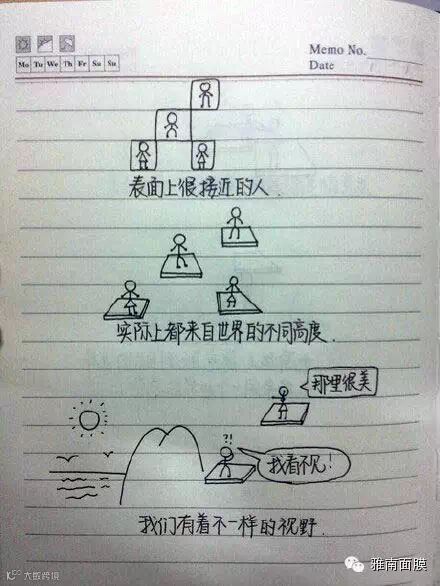 Memo No.
Mo Tu We Th Fr Sa Su
Date
表面上很接近的人.
实际上都来自世界的不同高度.
那里很美
?!
我看不见!
我们有着不一样的视野.
雅南面膜
大数跨境